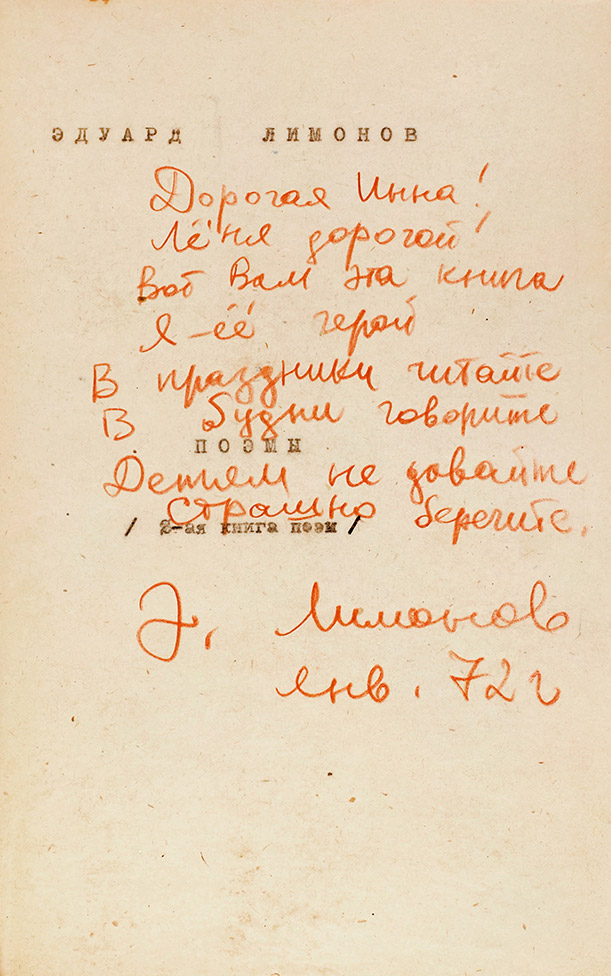 ЭДУАРД ЛИМОНОВ
Дорогая Инна!
Лёня дорогой!
Вот Вам эта книга
Я – её герой
В праздники читайте
В будни говорите
ПОЭМЫ
Детям не давайте
Страшно берегите.
/ 2-ая книга поэм /
Э. Лимонов
янв. 72 г